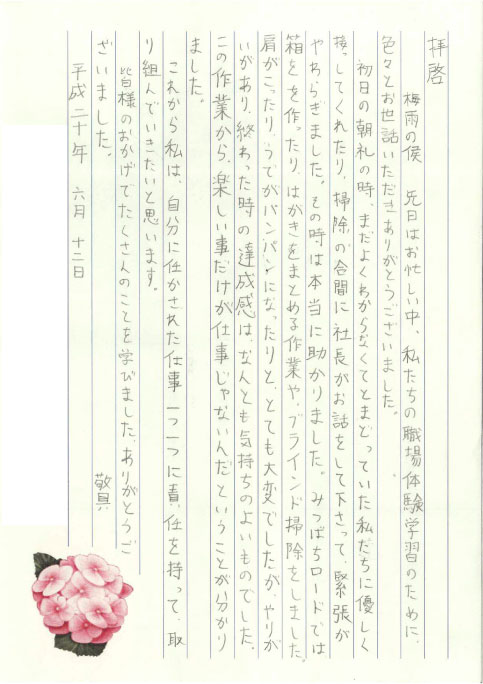 拝啓
梅雨の候　先日はお忙しい中、私たちの職場体験学習のために、
色々とお世話いただきありがとうございました。
初日の朝礼の時、まだよくわからなくてとまどっていた私たちに優しく
接してくれたり、掃除の合間に社長がお話をして下さって、緊張が
やわらぎました。その時は本当に助かりました。みつばちロードでは
箱をを作ったり、はがきをまとめる作業や、ブラインド掃除をしました。
肩がこったり、うでがパンパンになったりと、とても大変でしたが、やりが
いがあり、終わった時の達成感は、なんとも気持ちのよいものでした。
この作業から、楽しい事だけが仕事じゃないんだということが分かり
ました。
これから私は、自分に任かされた仕事一つ一つに責任を持って、取
り組んでいきたいと思います。
皆様のおかげでたくさんのことを学びました、ありがとうご
ざいました。
敬具
平成二十年　六月　十二日